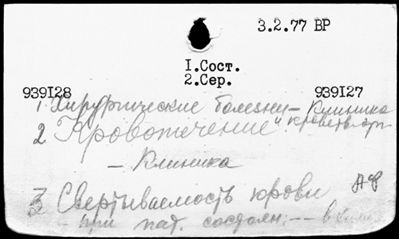 3.2.77 ВР
1.Сост.
2.Сер.
939I28 939I27
1. Хирургические болезни – Клиника
2 Кровотечение и кроветв.
– Клиника
3 Свертываемость крови
при пат. состоян. –